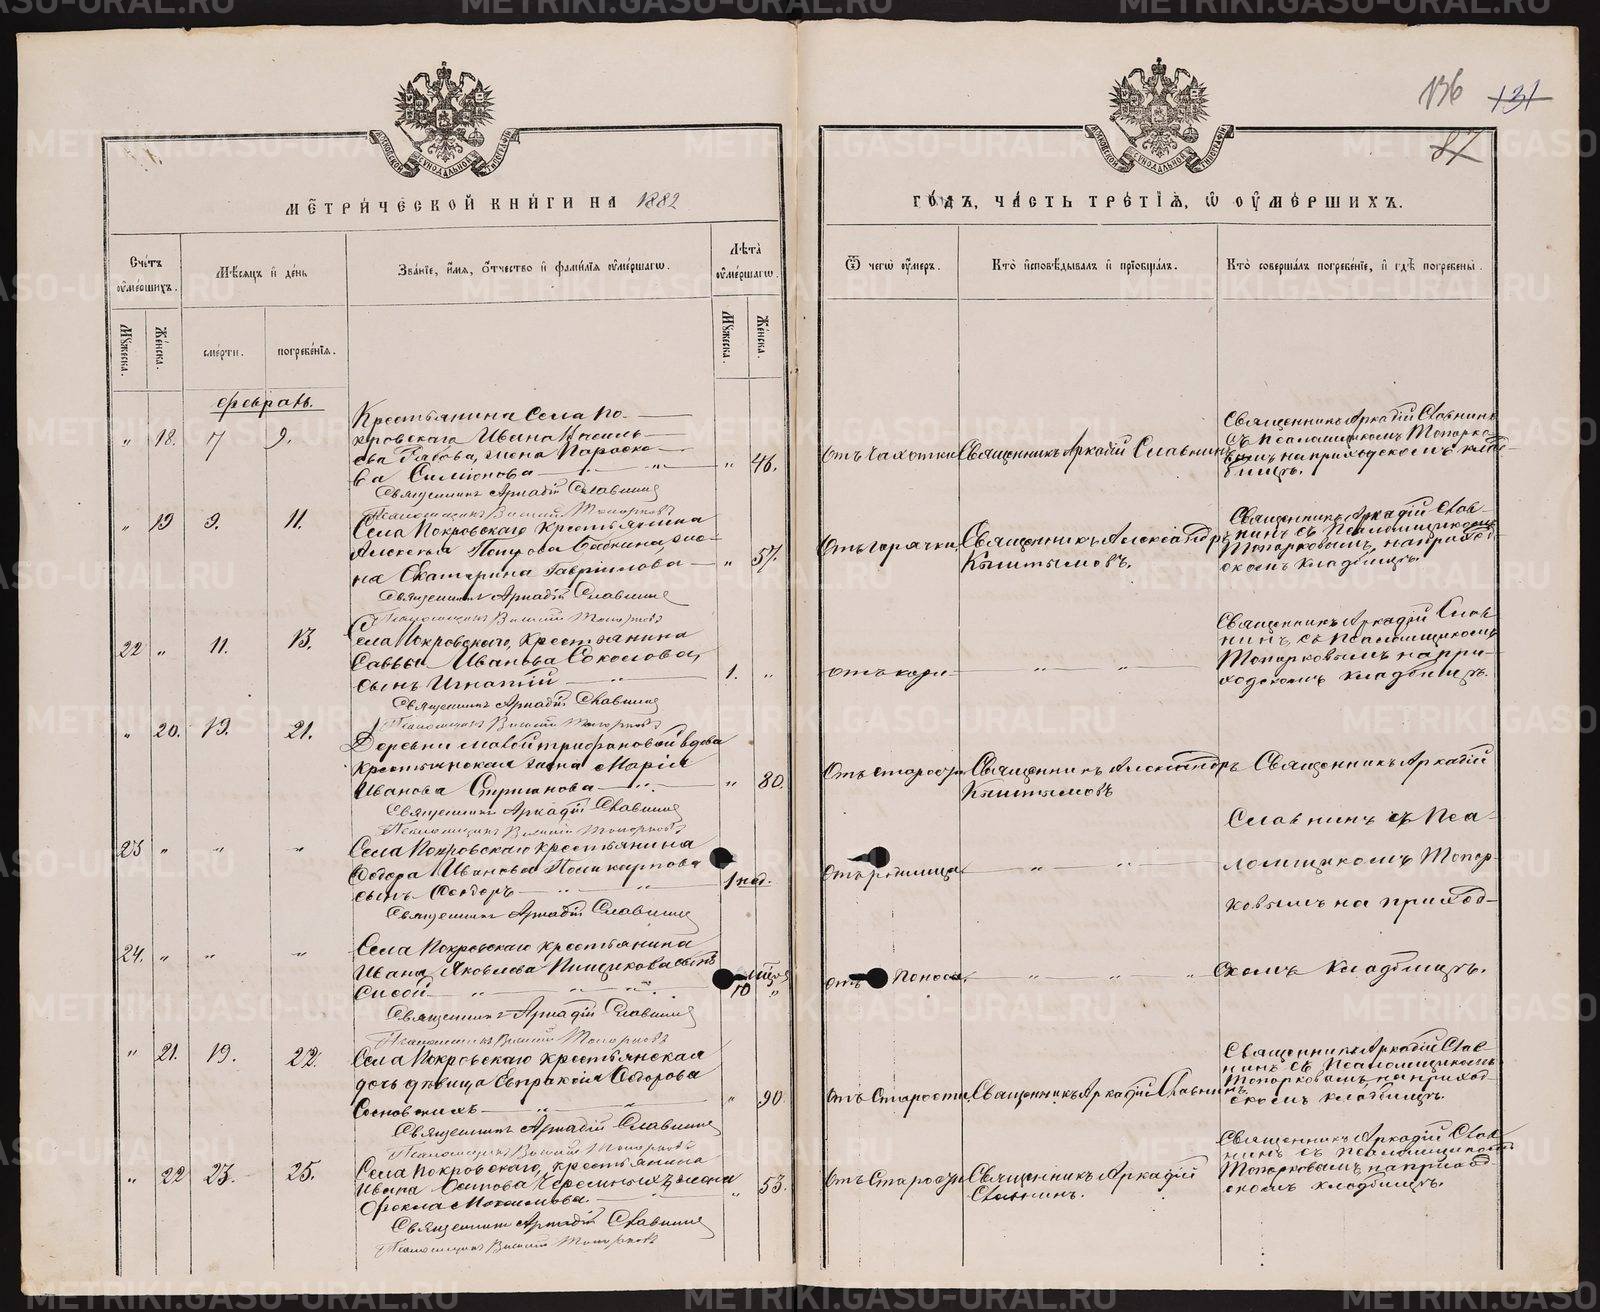 136 131
87
МЕТРИЧЕСКОЙ КНИГИ НА 1882
ГОДЪ, ЧАСТЬ ТРЕТІЯ, Ѡ ОУМЕРШИХЪ.
Счетъ оумершихъ.
Мѣсяцъ и день
Званіе, имя, отчество и фамилія оумершагѡ.
Лѣта оумершагѡ.
Ѿ чегѡ оумеръ.
Кто исповѣдывалъ и пріобщалъ.
Кто совершалъ погребеніе, и гдѣ погребены.
Мужеска.
Женска.
смерти.
погребенія.
Мужеска.
Женска.
Февраль.
„ 18. 7 9.
Крестьянина Села По-
кровскаго Ивана Василь-
ева Рябова, жена Параске-
ва Симіонова „ 46.
Священникъ Аркадій Славнинъ
Псаломщикъ Василій Топорковъ
Отъ чахотки
Священникъ Аркадій Славнинъ
Священникъ Аркадій Славнинъ
съ псаломщикомъ Топорко-
вымъ на приходскомъ клад-
бищѣ.
„ 19 9. 11.
Села Покровскаго крестьянина
Алексѣя Петрова Бабкина, же-
на Екатерина Гавріилова „ 57.
Священникъ Аркадій Славнинъ
Псаломщикъ Василій Топорковъ
Отъ горячки
Священникъ Александръ
Кыштымовъ.
Священникъ Аркадій Слав-
нинъ съ Псаломщикомъ
Топорковымъ, на приход-
скомъ кладбищѣ.
22 „ 11. 13.
Села Покровскаго, крестьянина
Саввы Иванова Соколова,
сынъ Игнатій 1. „
Священникъ Аркадій Славнинъ
Псаломщикъ Василій Топорковъ
отъ кори
„ „
Священникъ Аркадій Слав-
нинъ, съ псаломщикомъ
Топорковымъ на при-
ходскомъ кладбищѣ.
„ 20. 19. 21.
Деревни Малой трифановой вдова
крестьянская жена Марія
Иванова Стриганова „ 80.
Священникъ Аркадій Славнинъ
Псаломщикъ Василій Топорковъ
Отъ старости
Священникъ Александръ
Кыштымовъ
Священникъ Аркадій
Славнинъ съ Пса-
23 „ „ „
Села Покровскаго крестьянина
Ѳедора Иванова Поликарпова
сынъ Ѳеодоръ 1 нед.
Священникъ Аркадій Славнинъ
Отъ родимца
„ „
ломщикомъ Топор-
ковымъ на приход-
24. „ „ „
Села Покровскаго крестьянина
Ивана Яковлева Пищикова сынъ
Сысой 10 „
Священникъ Аркадій Славнинъ
Псаломщикъ Василій Топорковъ
отъ Поноса
„ „ „
скомъ Кладбищѣ.
„ 21. 19. 22.
Села Покровскаго крестьянская
дочь дѣвица Евпраксія Ѳедорова
Сосновскихъ „ 90
Священникъ Аркадій Славнинъ
Псаломщикъ Василій Топорковъ
Отъ Старости.
Священникъ Аркадій Славнинъ.
Священникъ Аркадій Слав-
нинъ съ Псаломщикомъ
Топорковымъ на приход-
скомъ кладбищѣ.
„ 22 23. 25.
Села Покровскаго, крестьянина
Ивана Осипова жена
Ѳекла Максимова. „ 53.
Священникъ Аркадій Славнинъ
Псаломщикъ Василій Топорковъ
Отъ Старости
Священникъ Аркадій
Славнинъ.
Священникъ Аркадій Слав-
нинъ съ псаломщикомъ
Топорковымъ на приход-
скомъ кладбищѣ.
METRIKI.GASO-URAL.RU